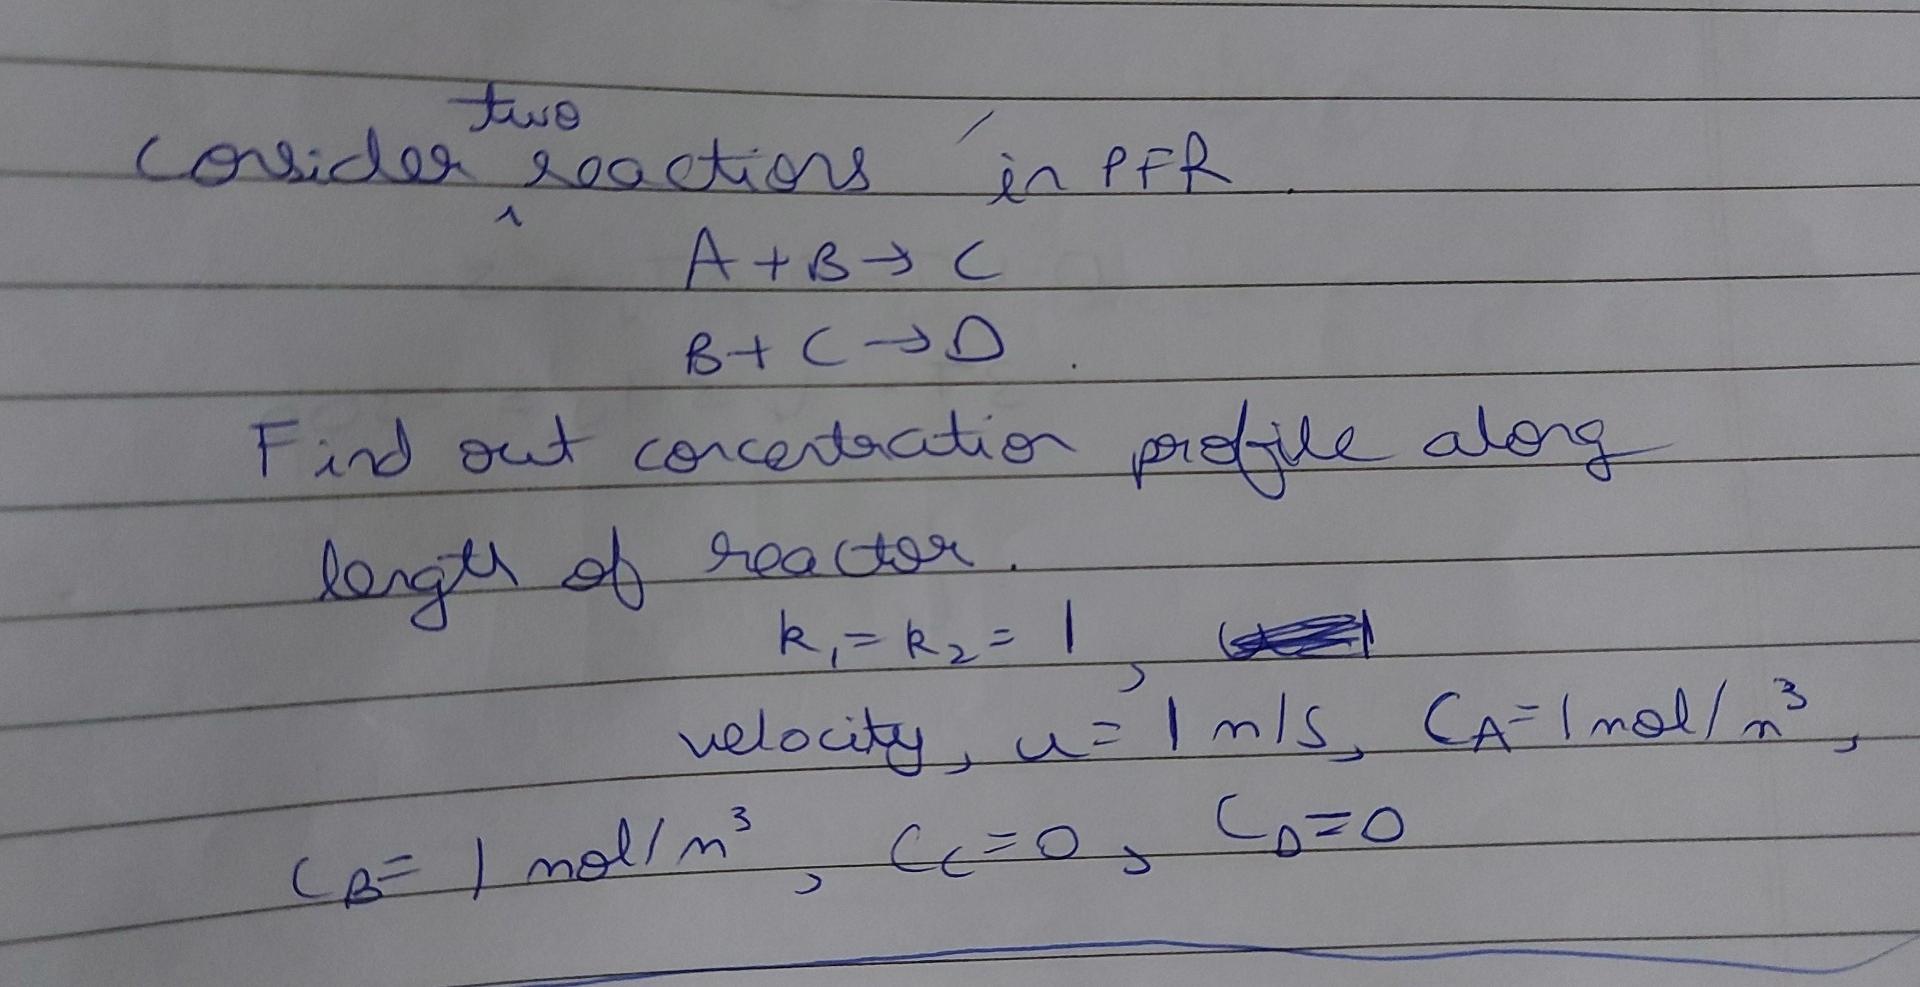 two
Consider reactions in PFR.
A + B → C
B + C → D.
Find out concentration profile along
length of reactor.
k₁ = k₂ = 1,
velocity, u = 1 m/s, CA = 1 mol/m³,
CB = 1 mol/m³, CC = 0, CD = 0